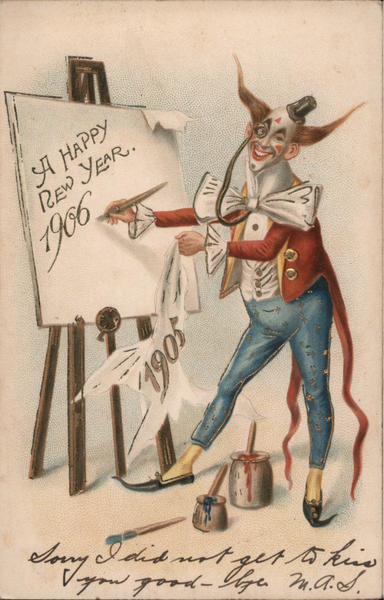 A HAPPY
NEW YEAR.
1906
1905
Sorry I did not get to kiss
you good-bye M.A.S.